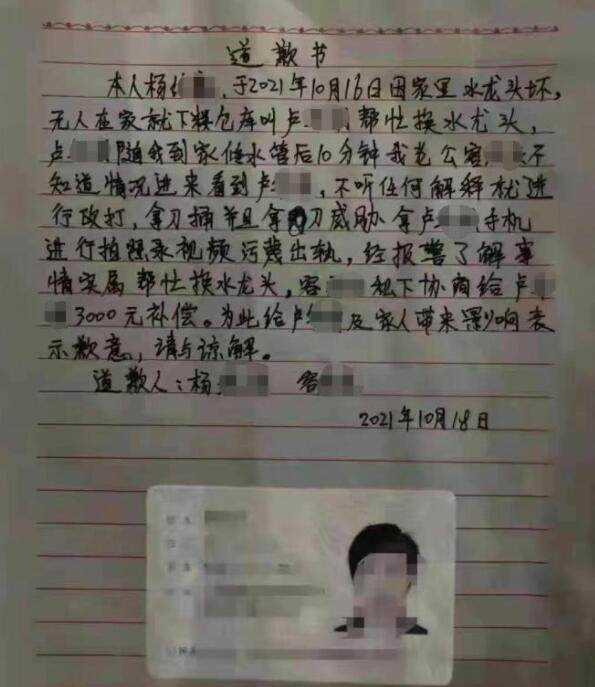 道歉书
本人杨 ,于2021年10月16日因家里水龙头坏,
无人在家就下粮仓库叫卢 帮忙换水龙头,
卢 随我到家修水管后10分钟我老公容 不
知道情况进来看到卢 ,不听任何解释就进
行攻打,拿刀捅并且拿 刀威胁拿卢 手机
进行拍照录视频污蔑出轨,经报警了解事
情实属帮忙换水龙头,容 私下协商给卢
3000元补偿。为此给卢 及家人带来影响表
示歉意,请与谅解。
道歉人:杨 容
2021年10月18日